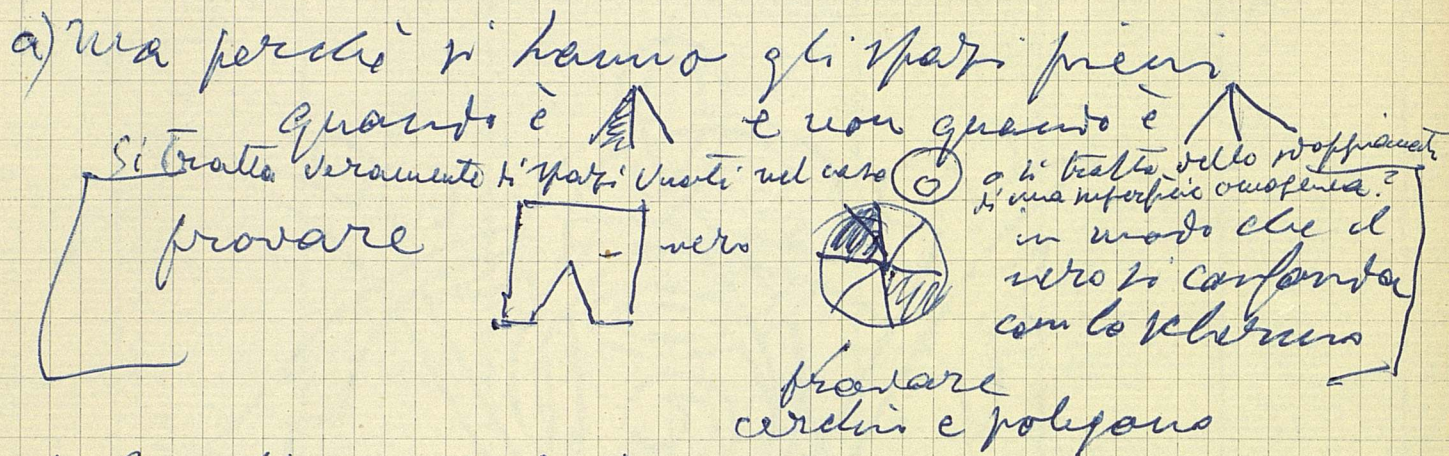 a) Ma perchè si hanno gli spazi pieni
quando è e non quando è
Si tratta veramente di spazi vuoti nel caso o si tratta dello sdoppiamento
di una superficie omogenea?
provare
nero
in modo che il
nero si confonda
con lo schermo
provare
cerchio e poligono